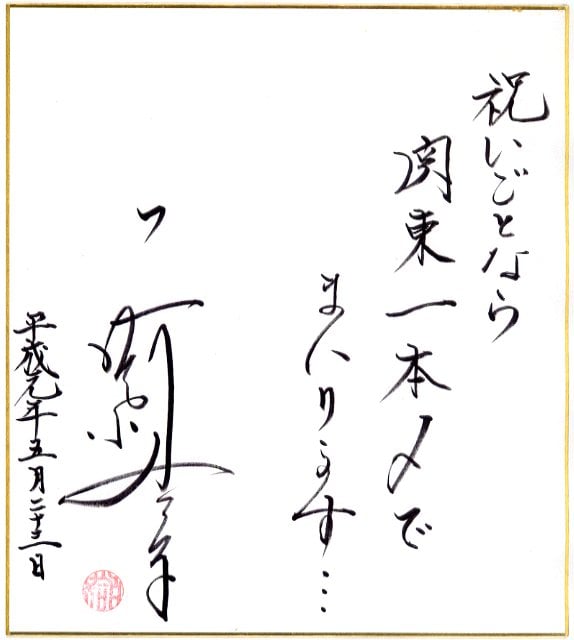 祝いごとなら
関東一本〆で
まいります…
平成元年五月二十三日